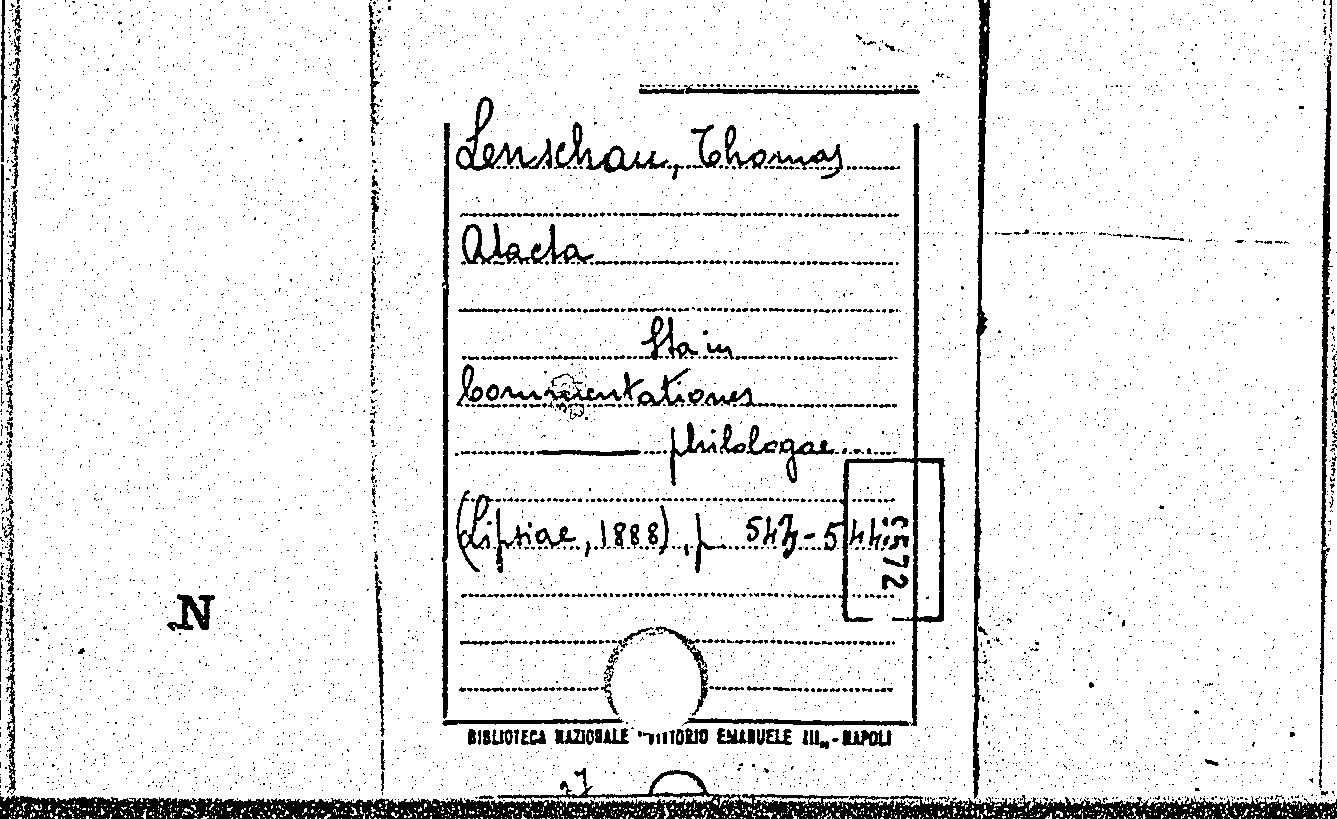 Lenschau, Thomas
Atacta
Sta in
Commentationes
philologae...
(Lipsiae, 1888), p.
N
BIBLIOTECA NAZIONALE "VITTORIO EMANUELE III„ - NAPOLI
27